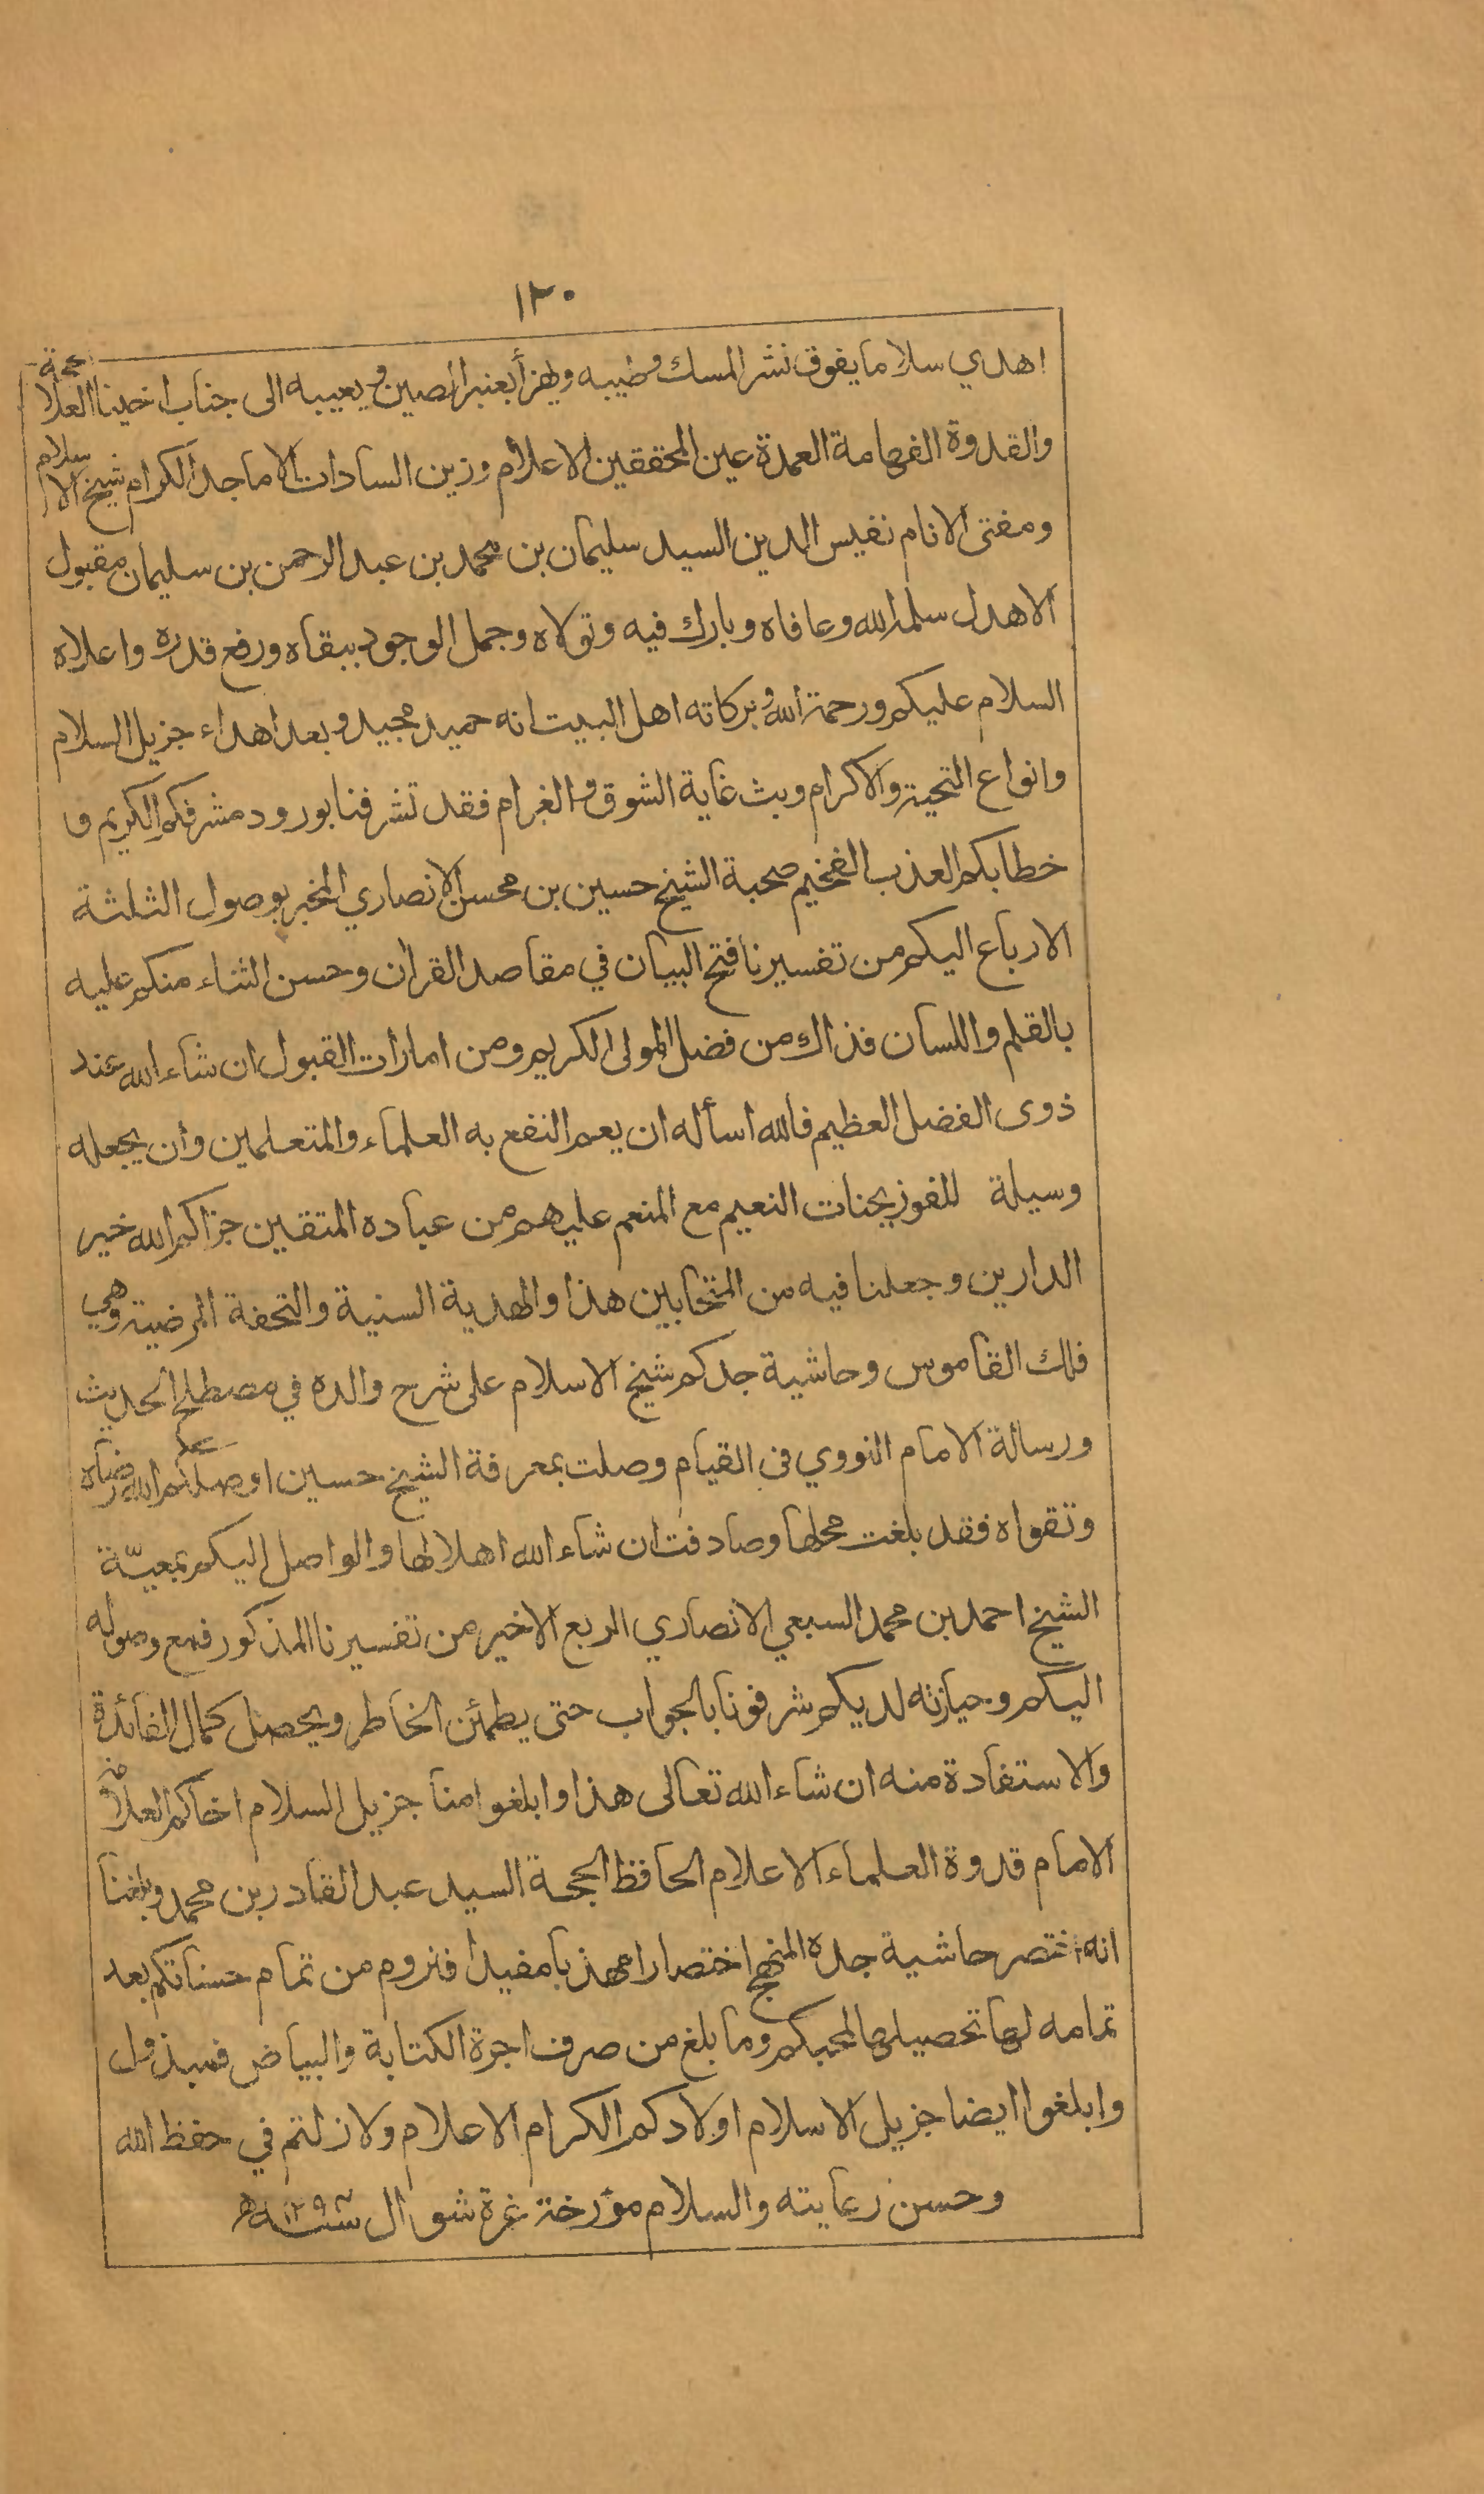 ١٢٠
اهدي سلاما يفوق نشر المسك وطيبه ويهزأ بعنبر الصين ويعيبه الى جناب اخينا الحجة العلا
والقدوة الفهامة العمدة عين المحققين الاعلام وزين السادات الاماجد الكرام شيخ الاسلام
ومفتى الانام نفيس الدين السيد سليمان بن محمد بن عبد الرحمن بن سليمان مقبول
الاهدل سلمه الله وعافاه وبارك فيه وتولاه وجمل الوجود ببقاه ورفع قدره واعلاه
السلام عليكم ورحمة الله وبركاته اهل البيت انه حميد مجيد وبعد اهداء جزيل السلام
وانواع التحية والاكرام وبث غاية الشوق والغرام فقد تشرفنا بورود مشرفكم الكريم و
خطابكم العذب الفخيم صحبة الشيخ حسين بن محسن الانصاري المخبر بوصول الثلثة
الارباع اليكم من تفسيرنا فتح البيان في مقاصد القران وحسن الثناء منكم عليه
بالقلم واللسان فذاك من فضل المولى الكريم ومن امارات القبول ان شاء الله عند
ذوى الفضل العظيم فالله اسأله ان يعم النفع به العلماء والمتعلمين وأن يجعله
وسيلة للفوز بجنات النعيم مع المنعم عليهم من عباده المتقين جزاكم الله خير
الدارين وجعلنا فيه من المتحابين هذا والهدية السنية والتحفة المرضية وهي
فلك القاموس وحاشية جدكم شيخ الاسلام على شرح والده في مصطلح الحديث
ورسالة الامام النووي في القيام وصلت بمعرفة الشيخ حسين اوصلكم الله رضاه
وتقواه فقد بلغت محلها وصادفت ان شاء الله اهلا لها والواصل اليكم بمعيّة
الشيخ احمد بن محمد السبعي الانصاري الربع الاخير من تفسيرنا المذكور فمع وصوله
اليكم وحيازته لديكم شرفونا بالجواب حتى يطمئن الخاطر ويحصل كمال الفائدة
والاستفادة منه ان شاء الله تعالى هذا وابلغوا منا جزيل السلام اخاكم العلامة
الامام قدوة العلماء الاعلام الحافظ الحجة السيد عبد القادر بن محمد وبلغنا
انه اختصر حاشية جده المنهج اختصارا مهذبا مفيدا فنروم من تمام حسناتكم بعد
تمامه لها تحصيلها لمحبكم وما بلغ من صرف اجرة الكتابة والبياض فمبذول
وابلغوا ايضا جزيل الاسلام اولادكم الكرام الاعلام ولا زلتم في حفظ الله
وحسن رعايته والسلام مؤرخة غرة شوال سنه